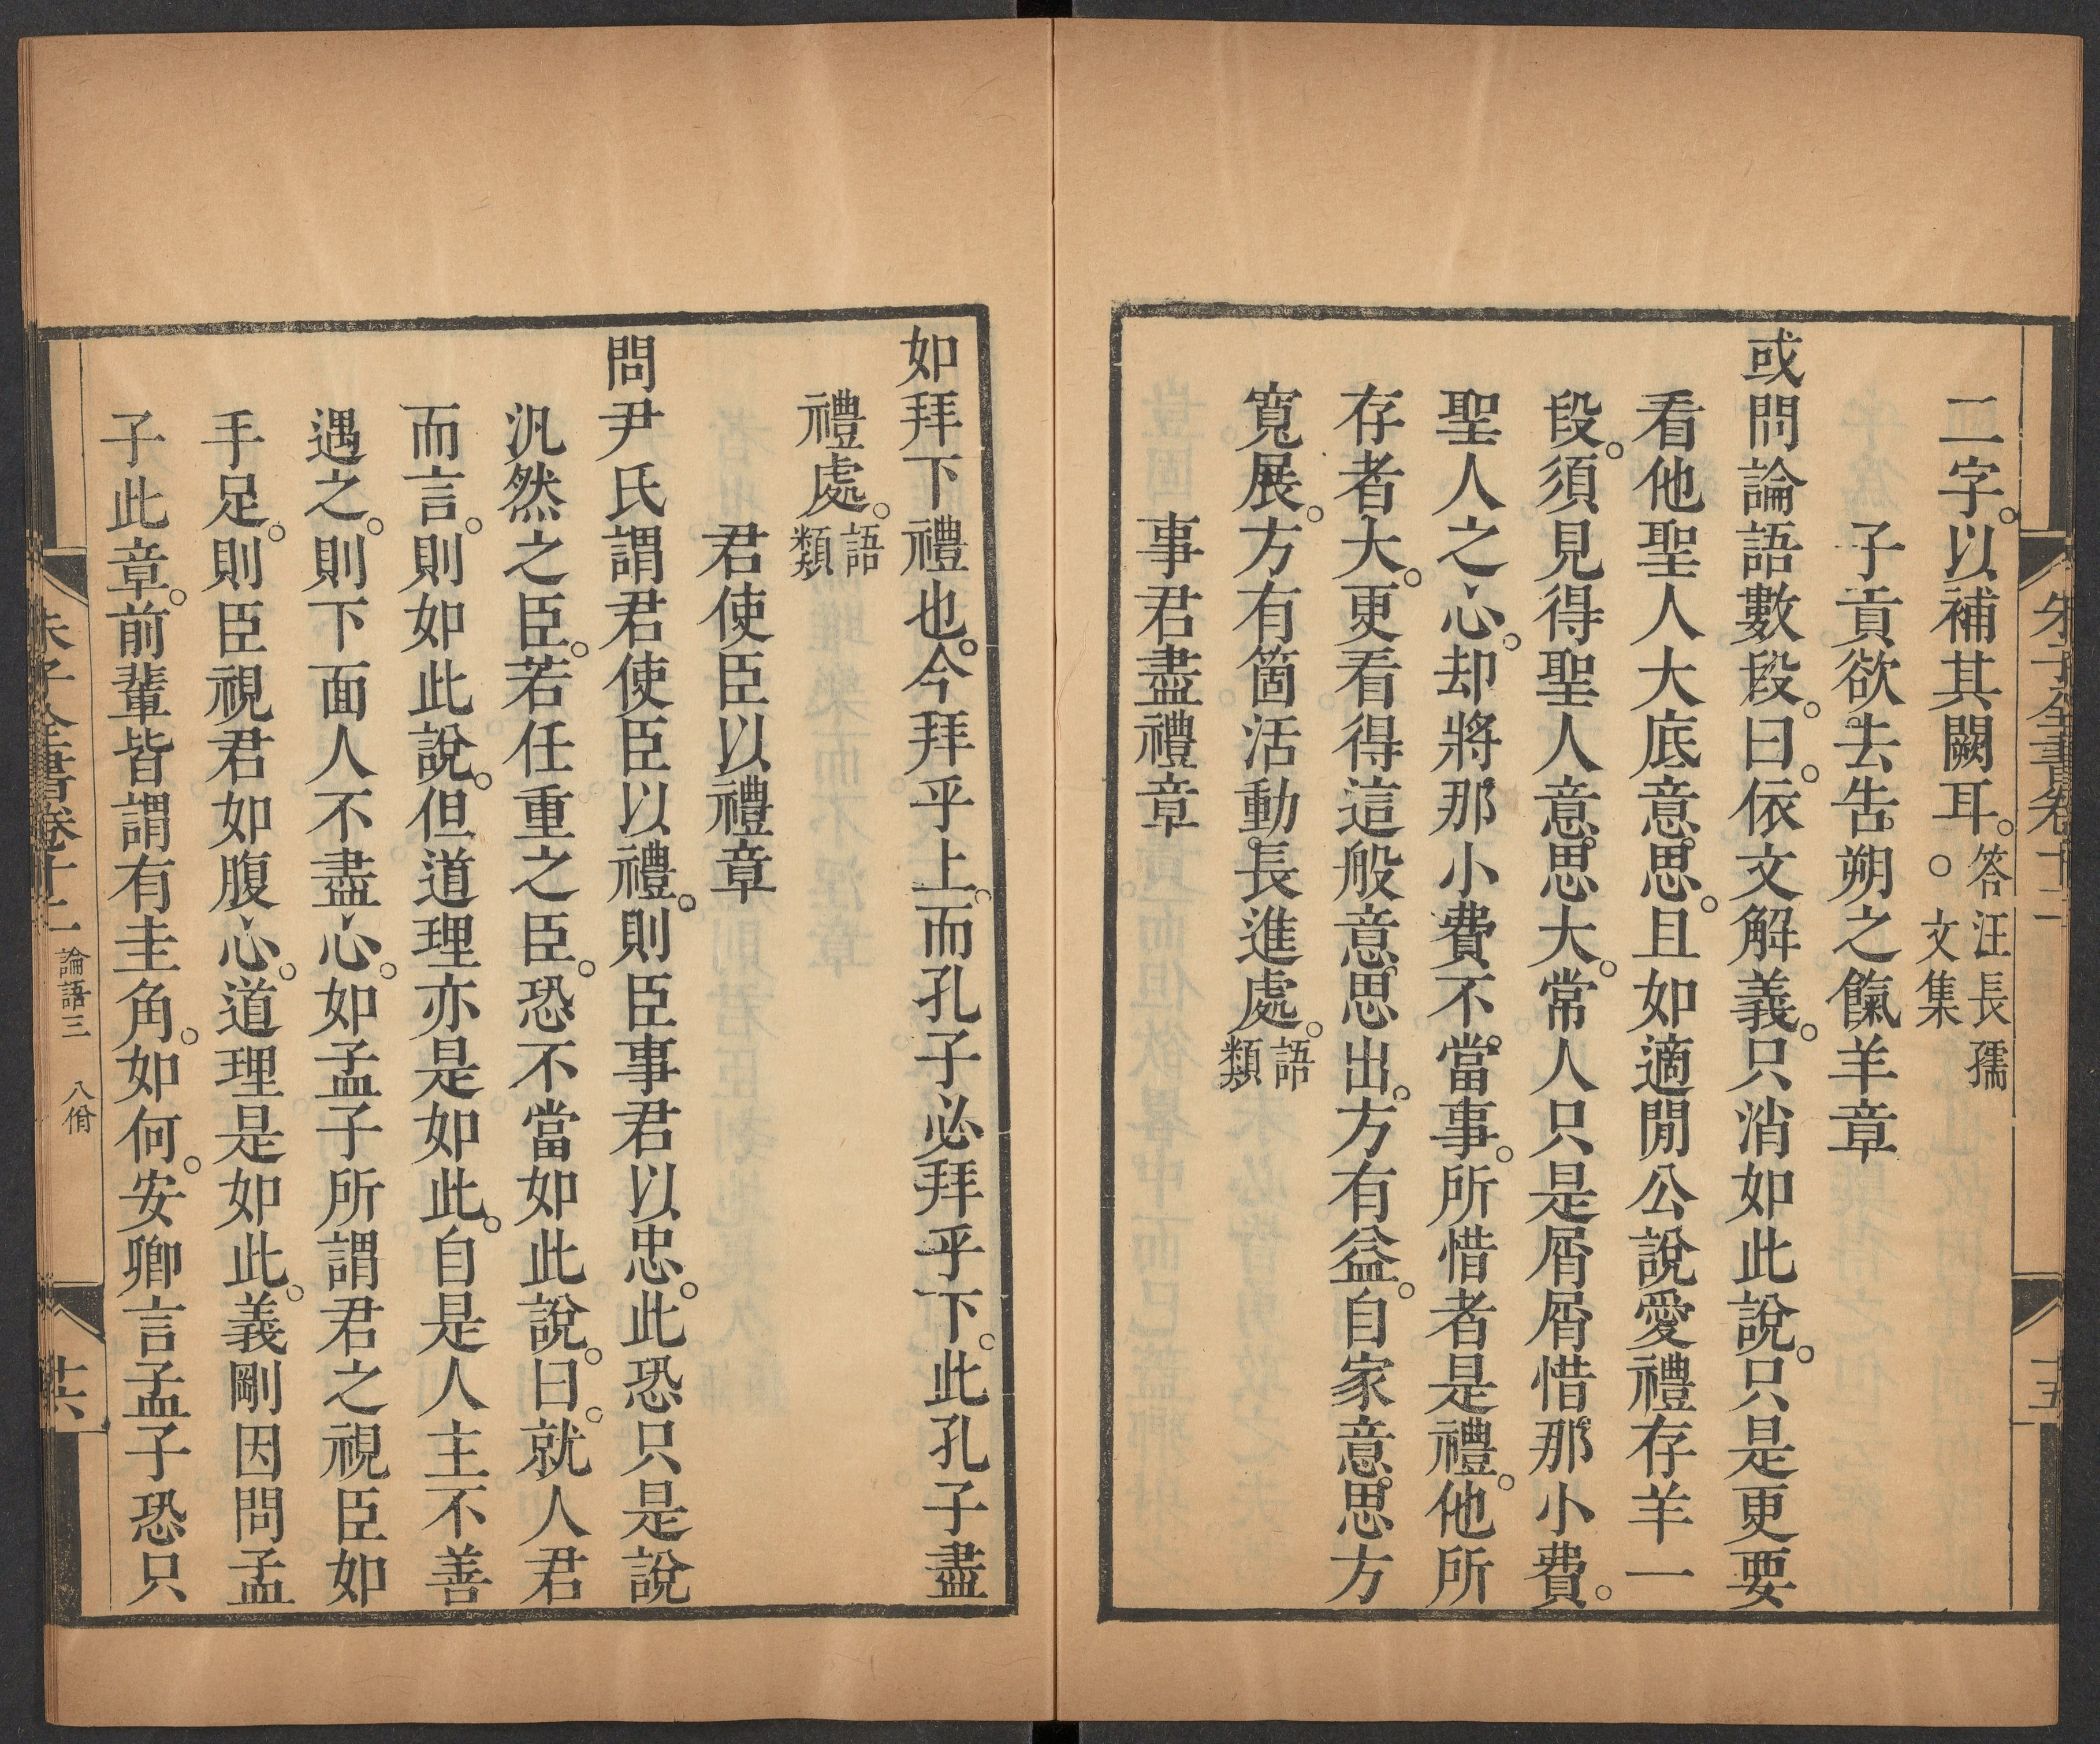 朱子全書卷十二
十五
二字。以補其闕耳。答汪長孺○文集
子貢欲去告朔之餼羊章
或問論語數段。曰。依文解義。只消如此說。只是更要
看他聖人大底意思。且如適閒公說愛禮存羊一
段。須見得聖人意思大。常人只是屑屑惜那小費。
聖人之心。却將那小費不當事。所惜者是禮。他所
存者大。更看得這般意思出。方有益。自家意思方
寬展。方有箇活動長進處。語類
事君盡禮章
如拜下禮也。今拜乎上。而孔子必拜乎下。此孔子盡
禮處。語類
君使臣以禮章
問尹氏謂君使臣以禮。則臣事君以忠。此恐只是說
汎然之臣。若任重之臣。恐不當如此說。曰。就人君
而言。則如此說。但道理亦是如此。自是人主不善
遇之。則下面人不盡心。如孟子所謂君之視臣如
手足。則臣視君如腹心。道理是如此。義剛因問孟
子此章。前輩皆謂有圭角。如何。安卿言孟子恐只
朱子全書卷十二 論語三 八佾
十六